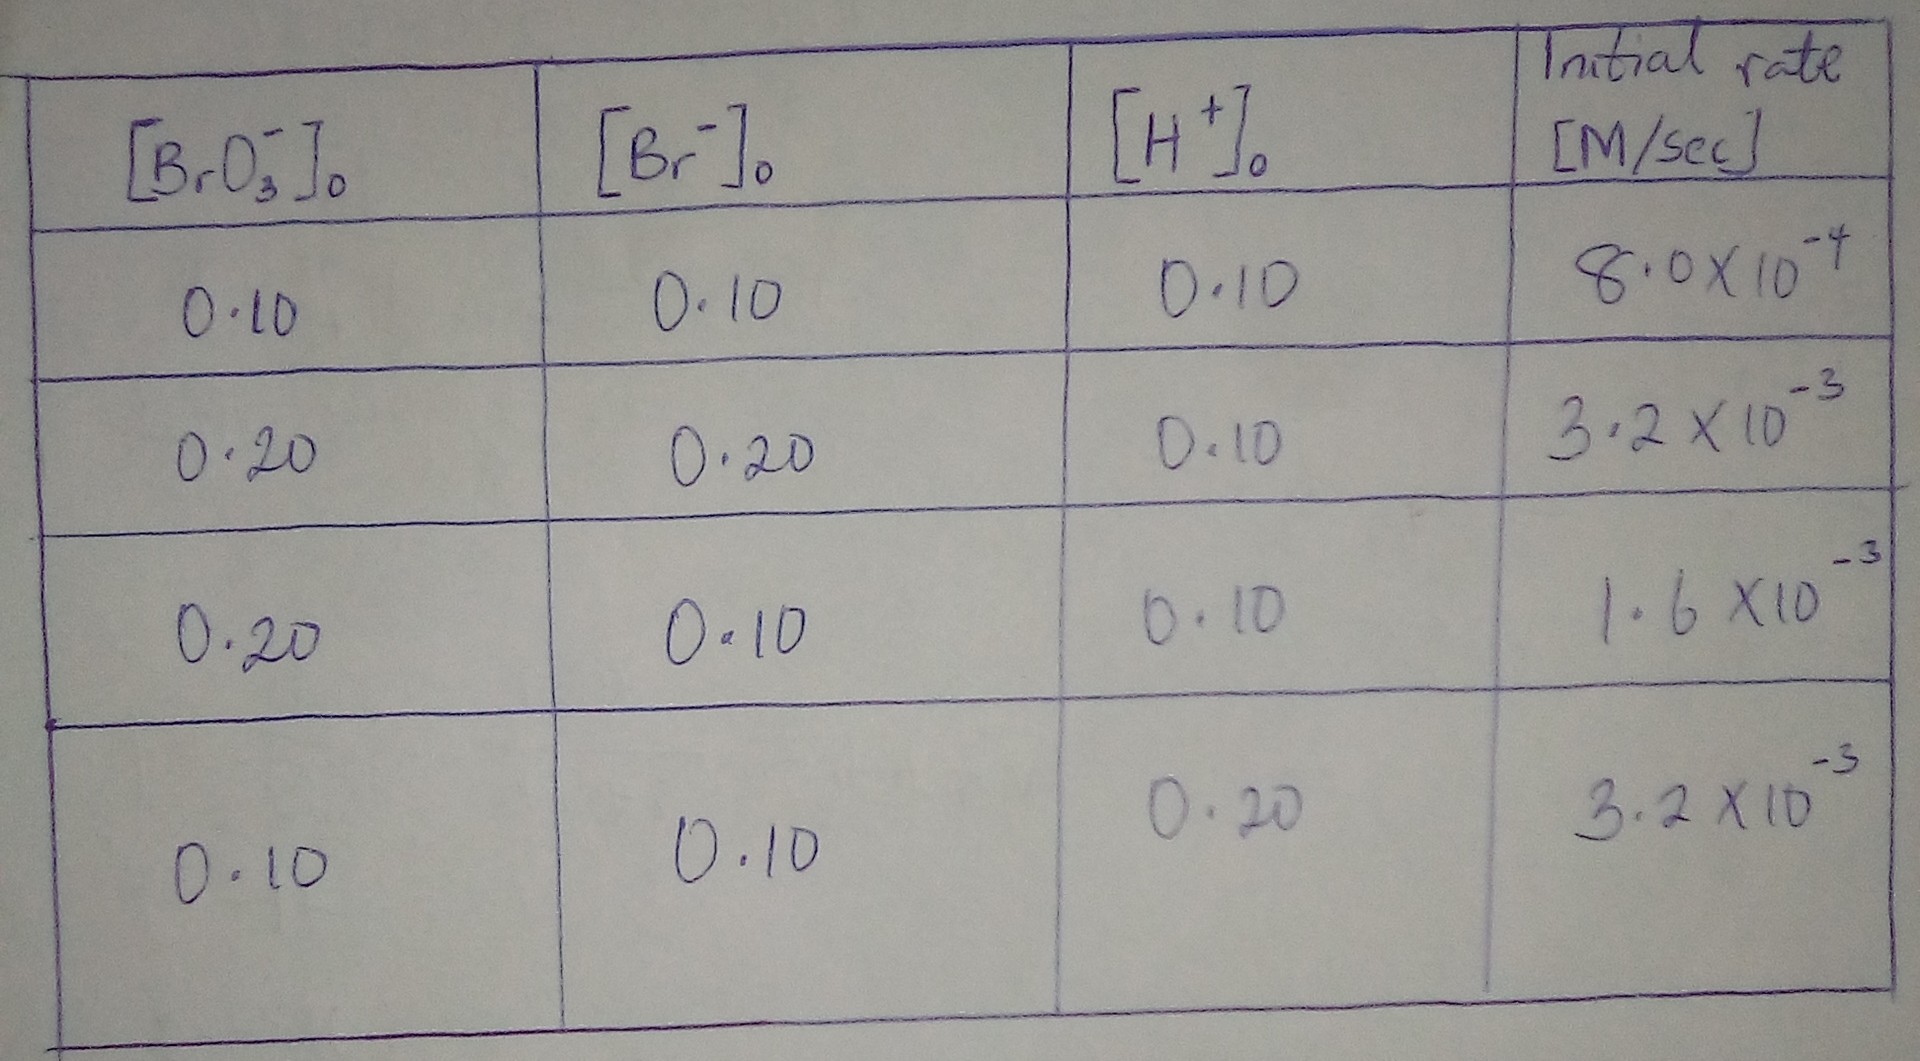 [BrO₃⁻]₀ [Br⁻]₀ [H⁺]₀ Initial rate [M/sec]
0.10 0.10 0.10 8.0 X 10⁻⁴
0.20 0.20 0.10 3.2 X 10⁻³
0.20 0.10 0.10 1.6 X 10⁻³
0.10 0.10 0.20 3.2 X 10⁻³